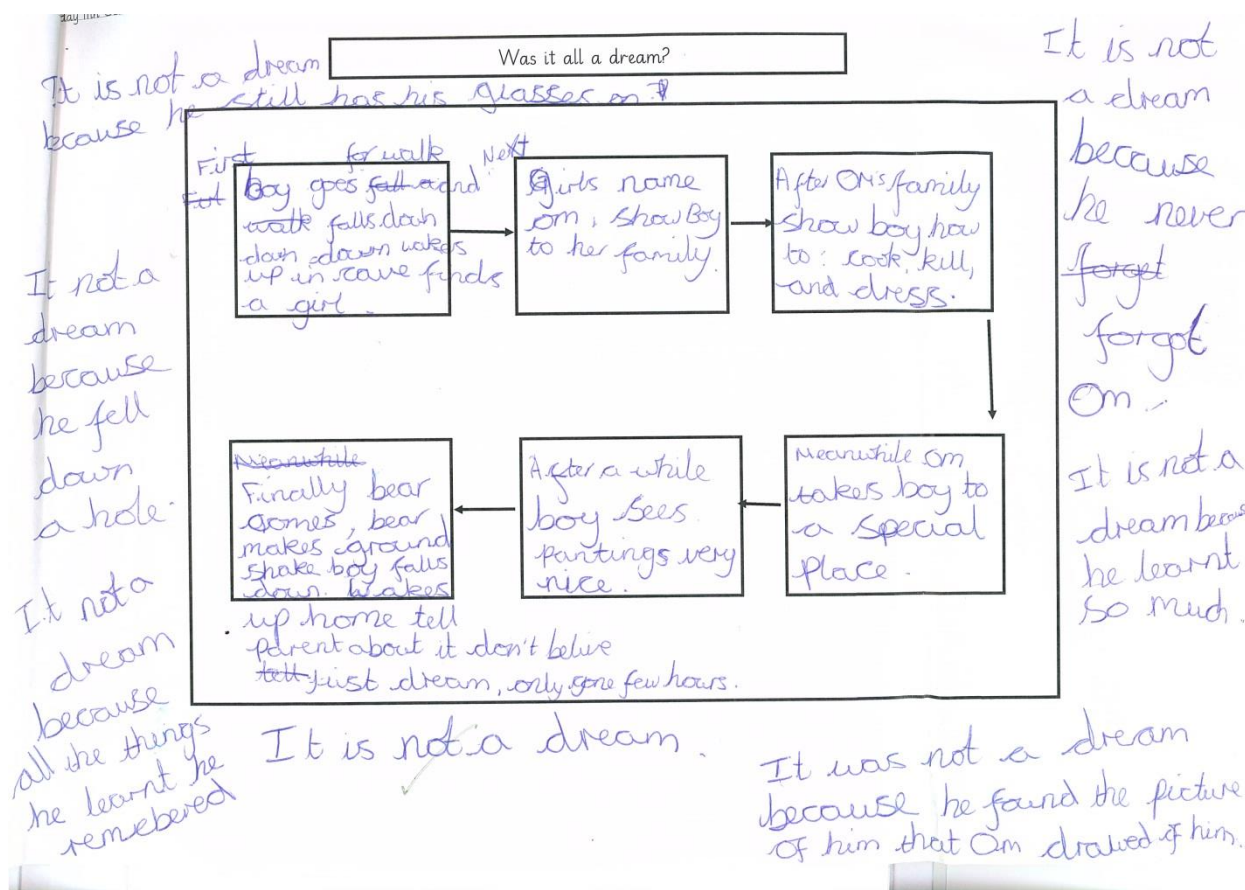 Was it all a dream?
It is not a dream
because he still has his glasses on
First for walk Next
First Boy goes fall and and
walk falls down
down down wakes
up in cave finds
a girl.
Girls name
om, show Boy
to her family.
After OM's family
show boy how
to: cook, kill,
and dress.
Meanwhile om
takes boy to
a special
place.
After a while
boy sees
pantings very
nice.
Meanwhile
Finally bear
comes, bear
makes ground
shake boy falls
down. Wakes
up home tell
parent about it don't belive
tell just dream, only gone few hours.
It not a
dream
because
he fell
down
a hole.
It not a
dream
because
all the things
he learnt he
remebered
It is not a dream.
It is not
a dream
because
he never
forget
forgot
Om.
It is not a
dream because
he learnt
so much.
It was not a dream
because he found the picture
of him that Om drawed of him.